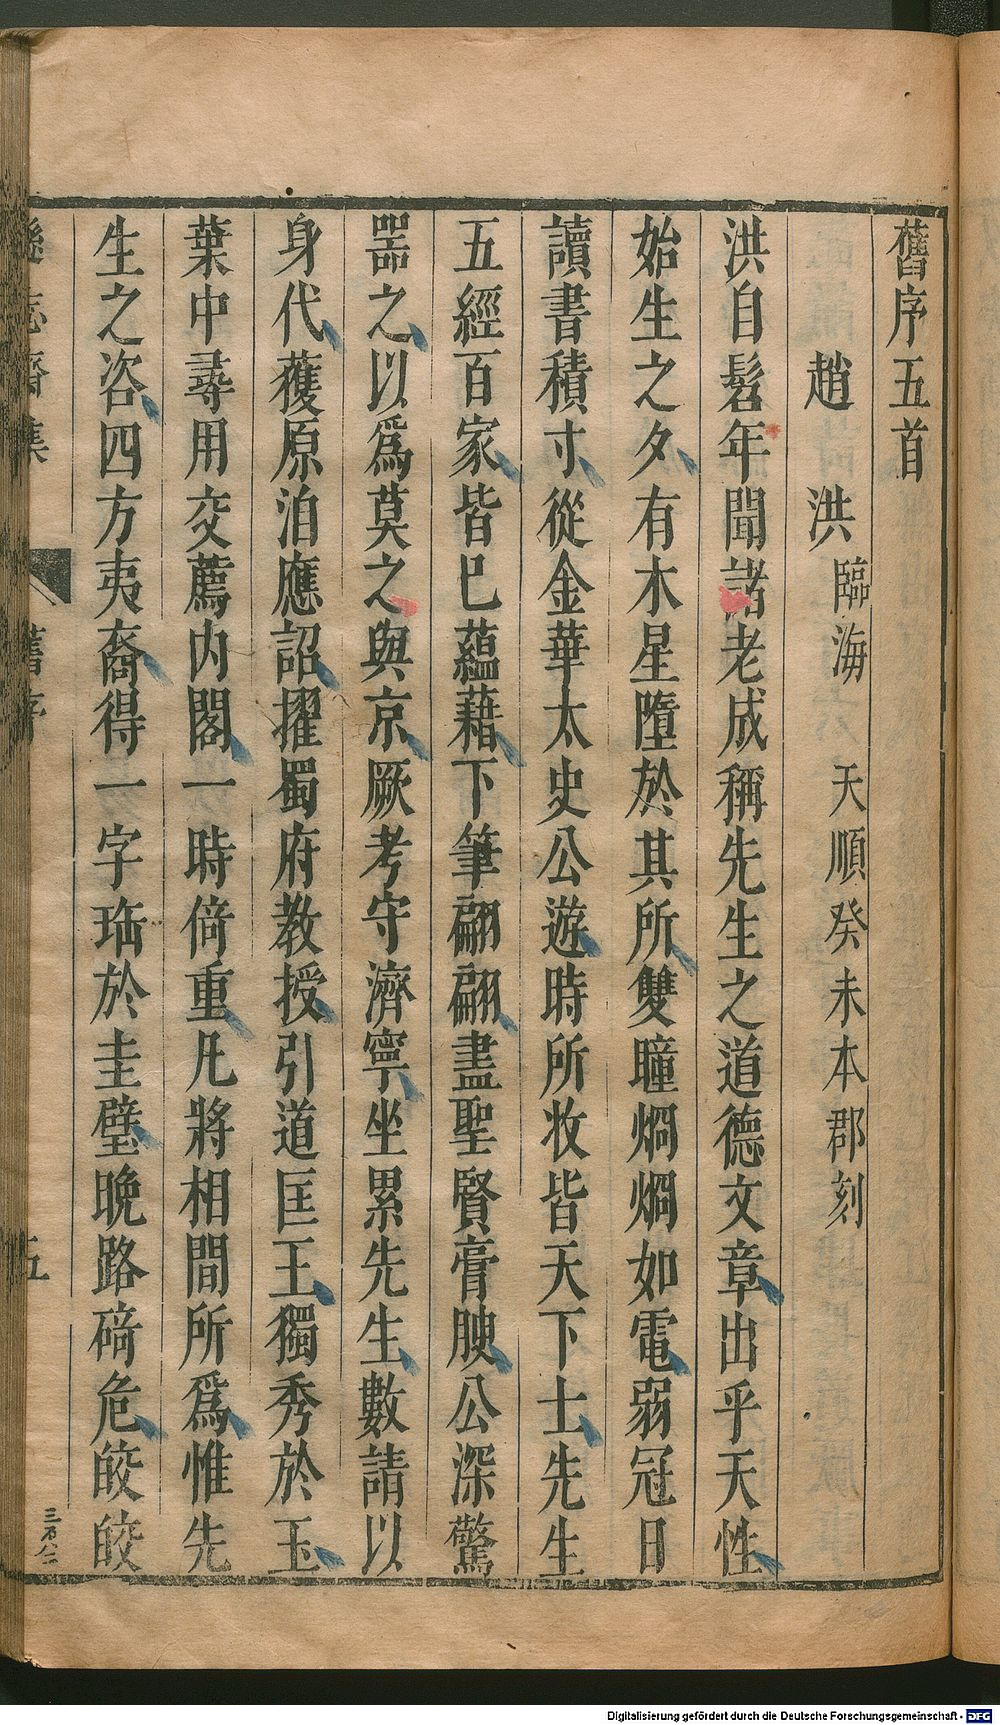 舊序五首
趙　洪 臨海　天順癸未本郡刻
洪自髫年聞諸老成稱先生之道德文章出乎天性
始生之夕有木星墮於其所雙瞳烱烱如電弱冠日
讀書積寸從金華太史公遊時所收皆天下士先生
五經百家皆已蘊藉下筆翩翩盡聖賢膏腴公深驚
噐之以爲莫之與京厥考守濟寧坐累先生數請以
身代獲原洎應詔擢蜀府教授引道匡王獨秀於玉
葉中尋用交薦内閣一時倚重凡將相間所爲惟先
生之咨四方夷裔得一字珤於圭璧晚路碕危皎皎
遜志齋集　舊序　五
Digitalisierung gefördert durch die Deutsche Forschungsgemeinschaft - DFG